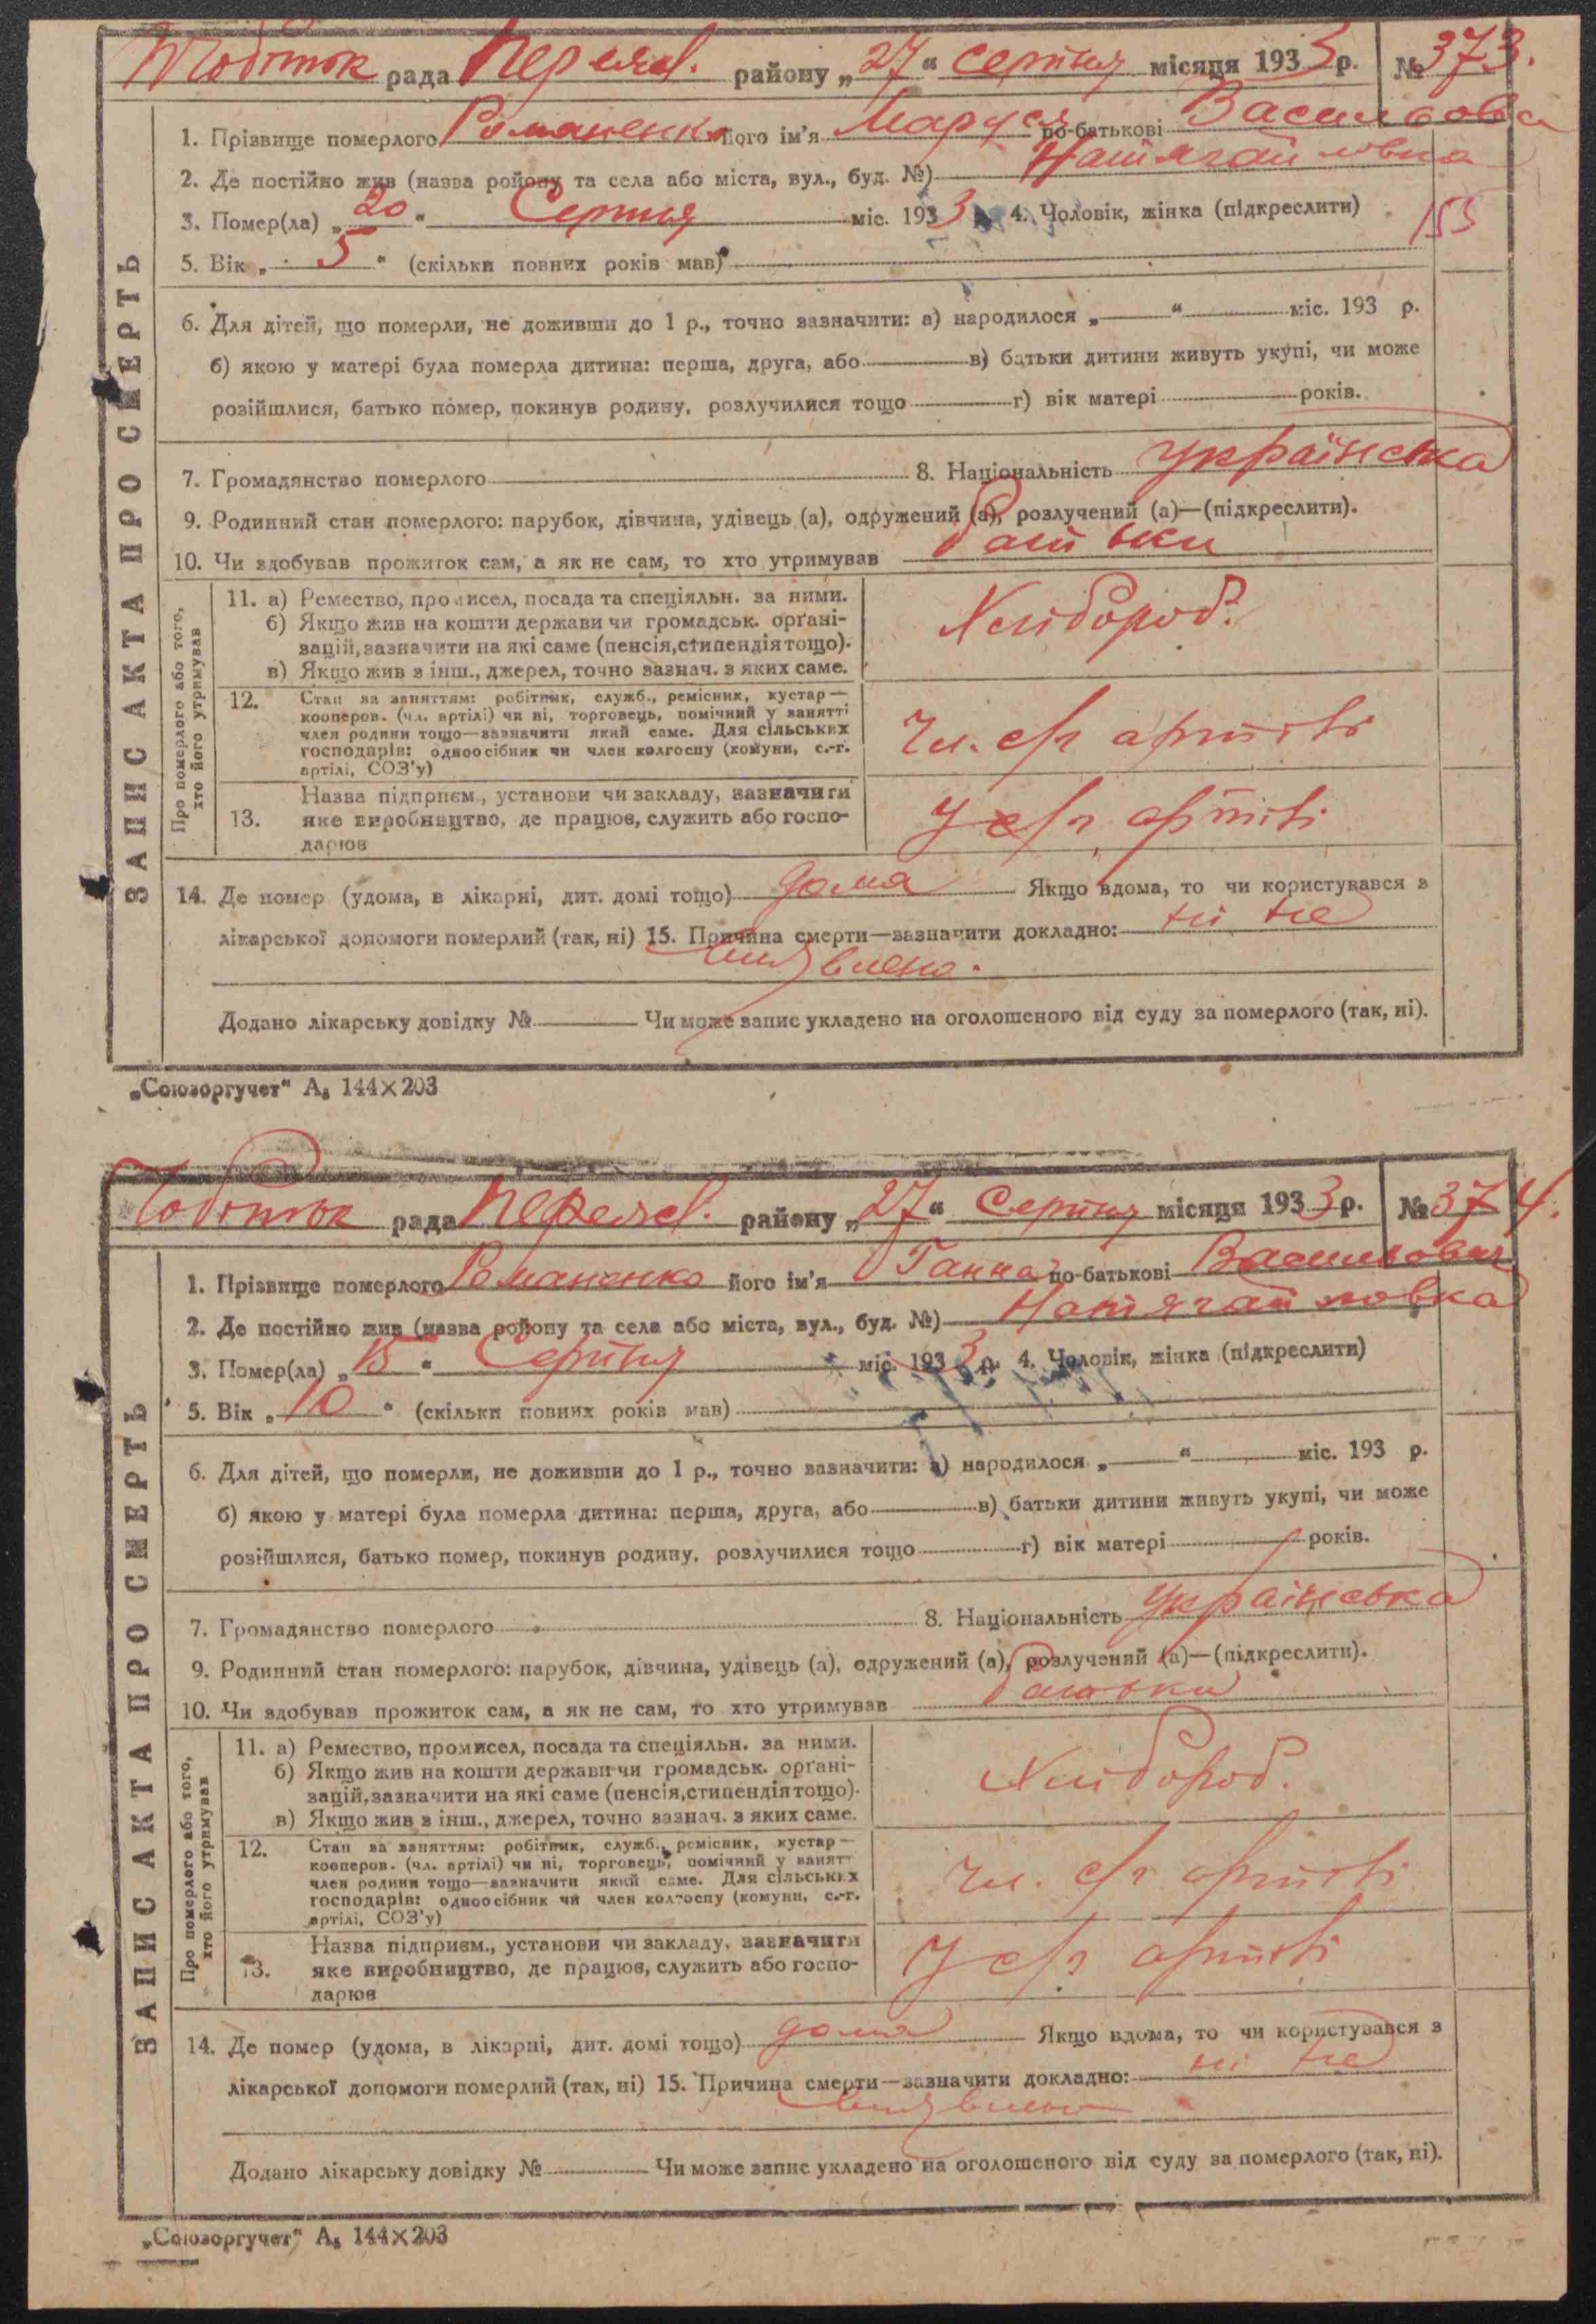 рада Переясл. району „27“ серпня місяця 1933 р. № 373.
1. Прізвище померлого Романенко його ім'я Маруся по-батькові Васильовна
2. Де постійно жив (назва ройону та села або міста, вул., буд. №) Натягайловка
3. Помер(ла) „20“ Серпня міс. 1933 р. 4. Чоловік, жінка (підкреслити) 153
5. Вік „5“ (скільки повних років мав)
6. Для дітей, що померли, не доживши до 1 р., точно зазначити: а) народилося „ “ міс. 193 р.
б) якою у матері була померла дитина: перша, друга, або в) батьки дитини живуть укупі, чи може
розійшлися, батько помер, покинув родину, розлучилися тощо г) вік матері років.
7. Громадянство померлого 8. Національність українська
9. Родинний стан померлого: парубок, дівчина, удівець (а), одружений (а), розлучений (а)—(підкреслити).
10. Чи здобував прожиток сам, а як не сам, то хто утримував батьки
ЗАПИС АКТА ПРО СМЕРТЬ
Про померлого або того,
хто його утримував
11. а) Ремество, промисел, посада та спеціяльн. за ними.
б) Якщо жив на кошти держави чи громадськ. орґані-
зацій, зазначити на які саме (пенсія, стипендія тощо).
в) Якщо жив з інш., джерел, точно зазнач. з яких саме.
Хлібороб.
12. Стан за заняттям: робітник, служб., ремісник, кустар—
кооперов. (чл. артілі) чи ні, торговець, помічний у занятті
член родини тощо—зазначити який саме. Для сільських
господарів: одноосібник чи член колгоспу (комуни, с.-г.
артілі, СОЗ'у)
Чл. с/г артілі
13. Назва підприєм., установи чи закладу, зазначити
яке виробництво, де працює, служить або госпо-
дарює
У с/г артілі
14. Де помер (удома, в лікарні, дит. домі тощо) дома Якщо вдома, то чи користувався з
лікарської допомоги померлий (так, ні) 15. Причина смерти—зазначити докладно: ні не
виявлено.
Додано лікарську довідку № Чи може запис укладено на оголошеного від суду за померлого (так, ні).
„Союзоргучет“ А₅ 144×203
рада Переясл. району „27“ Серпня місяця 1933 р. № 374.
1. Прізвище померлого Романенко його ім'я Ганна по-батькові Васильовна
2. Де постійно жив (назва ройону та села або міста, вул., буд. №) Натягайловка
3. Помер(ла) „15“ Серпня міс. 1933 р. 4. Чоловік, жінка (підкреслити)
5. Вік „10“ (скільки повних років мав)
6. Для дітей, що померли, не доживши до 1 р., точно зазначити: а) народилося „ “ міс. 193 р.
б) якою у матері була померла дитина: перша, друга, або в) батьки дитини живуть укупі, чи може
розійшлися, батько помер, покинув родину, розлучилися тощо г) вік матері років.
7. Громадянство померлого 8. Національність українська
9. Родинний стан померлого: парубок, дівчина, удівець (а), одружений (а), розлучений (а)—(підкреслити).
10. Чи здобував прожиток сам, а як не сам, то хто утримував батьки
ЗАПИС АКТА ПРО СМЕРТЬ
Про померлого або того,
хто його утримував
11. а) Ремество, промисел, посада та спеціяльн. за ними.
б) Якщо жив на кошти держави чи громадськ. орґані-
зацій, зазначити на які саме (пенсія, стипендія тощо).
в) Якщо жив з інш., джерел, точно зазнач. з яких саме.
Хлібороб.
12. Стан за заняттям: робітник, служб., ремісник, кустар—
кооперов. (чл. артілі) чи ні, торговець, помічний у занятт
член родини тощо—зазначити який саме. Для сільських
господарів: одноосібник чи член колгоспу (комуни, с.-г.
артілі, СОЗ'у)
Чл. с/г артілі
13. Назва підприєм., установи чи закладу, зазначити
яке виробництво, де працює, служить або госпо-
дарює
У с/г артілі
14. Де помер (удома, в лікарні, дит. домі тощо) дома Якщо вдома, то чи користувався з
лікарської допомоги померлий (так, ні) 15. Причина смерти—зазначити докладно: ні не
виявлено
Додано лікарську довідку № Чи може запис укладено на оголошеного від суду за померлого (так, ні).
„Союзоргучет“ А₅ 144×203